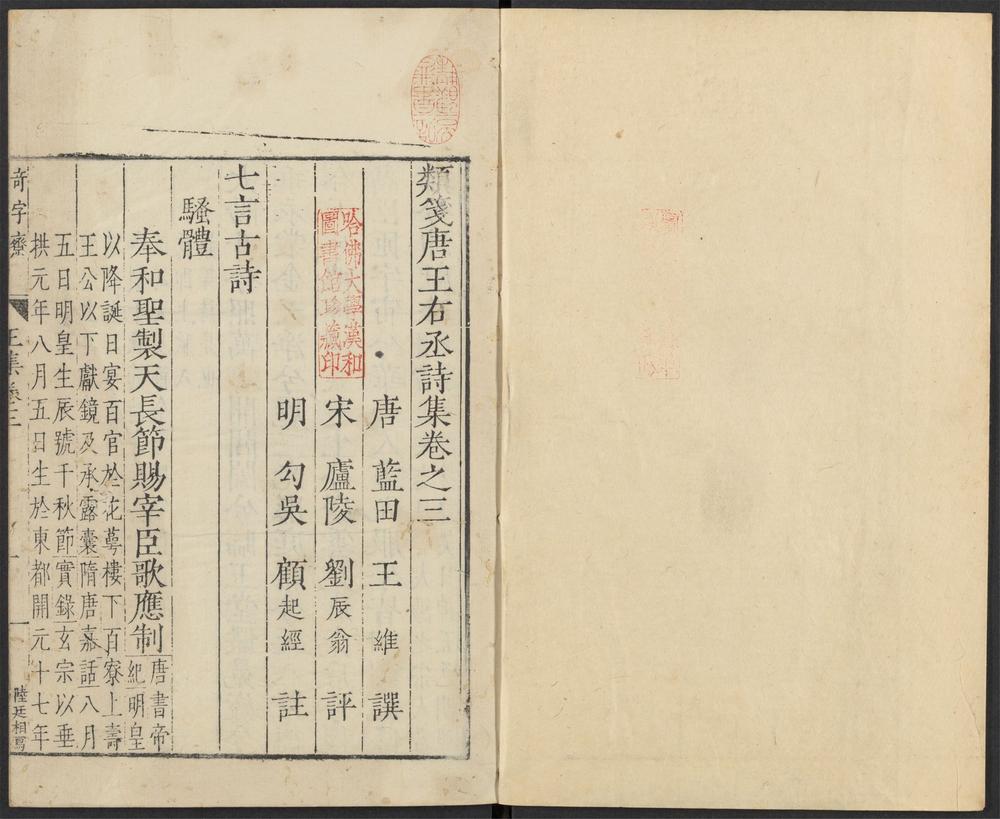 類箋唐王右丞詩集卷之三
唐 藍田 王維 撰
宋 廬陵 劉辰翁 評
明 勾吳 顧起經 註
哈佛大學漢和
圖書館珍藏印
七言古詩
騷體
奉和聖製天長節賜宰臣歌應制
唐書帝
紀明皇
以降誕日宴百官於花萼樓下百寮上壽
王公以下獻鏡及承露囊隋唐嘉話八月
五日明皇生辰號千秋節實錄玄宗以垂
拱元年八月五日生於東都開元十七年
奇字齋
王集卷三
一
陸廷相寫